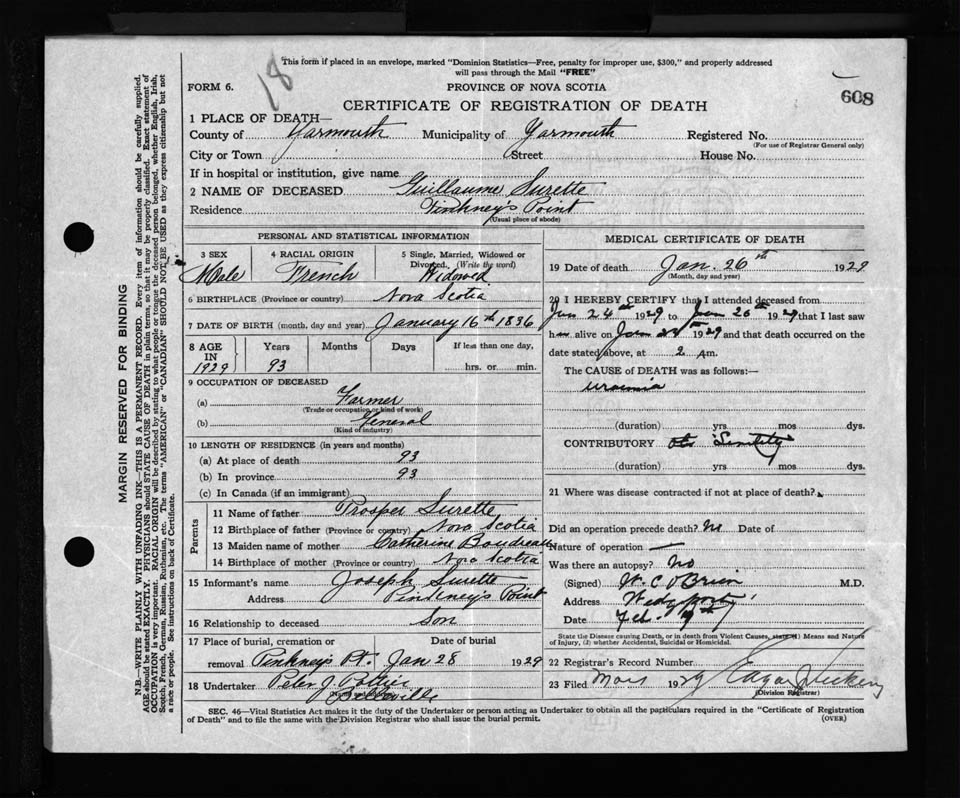 18
This form if placed in an envelope, marked "Dominion Statistics—Free, penalty for improper use, $300," and properly addressed
will pass through the Mail "FREE"
FORM 6. PROVINCE OF NOVA SCOTIA
608
CERTIFICATE OF REGISTRATION OF DEATH
1 PLACE OF DEATH—
County of Yarmouth Municipality of Yarmouth Registered No.
(For use of Registrar General only)
City or Town Street House No.
If in hospital or institution, give name
2 NAME OF DECEASED Guillaume Surette
Residence Pinkney's Point
(Usual place of abode)
PERSONAL AND STATISTICAL INFORMATION
3 SEX 4 RACIAL ORIGIN 5 Single, Married, Widowed or
Divorced. (Write the word)
Male French Widowed
6 BIRTHPLACE (Province or country) Nova Scotia
7 DATE OF BIRTH (month, day and year) January 16th 1836
8 AGE Years Months Days If less than one day,
IN
1929 93 hrs. or min.
9 OCCUPATION OF DECEASED
(a) Farmer
(Trade or occupation or kind of work)
(b) General
(Kind of industry)
10 LENGTH OF RESIDENCE (in years and months)
(a) At place of death 93
(b) In province 93
(c) In Canada (if an immigrant)
Parents
11 Name of father Prosper Surette
12 Birthplace of father (Province or country) Nova Scotia
13 Maiden name of mother Catherine Boudreau
14 Birthplace of mother (Province or country) Nova Scotia
15 Informant's name Joseph Surette
Address Pinkney's Point
16 Relationship to deceased Son
17 Place of burial, cremation or Date of burial
removal Pinkney's Pt. Jan 28 1929
18 Undertaker Peter J. Pottier
MEDICAL CERTIFICATE OF DEATH
19 Date of death Jan. 26th 1929
(Month, day and year)
20 I HEREBY CERTIFY that I attended deceased from
Jan 24th 1929 to Jan 26th 1929 that I last saw
him alive on Jan 1929 and that death occurred on the
date stated above, at 2 Am.
The CAUSE of DEATH was as follows:—
uraemia
(duration) yrs mos dys.
CONTRIBUTORY Senility
(duration) yrs mos dys.
21 Where was disease contracted if not at place of death?
Did an operation precede death? No Date of
Nature of operation —
Was there an autopsy? No
(Signed) W. C. O'Brien M.D.
Address Wedgeport
Date Feb.
State the Disease causing Death, or in death from Violent Causes, state (1) Means and Nature
of Injury, (2) whether Accidental, Suicidal or Homicidal.
22 Registrar's Record Number
23 Filed 1929
(Division Registrar)
SEC. 46—Vital Statistics Act makes it the duty of the Undertaker or person acting as Undertaker to obtain all the particulars required in the "Certificate of Registration
of Death" and to file the same with the Division Registrar who shall issue the burial permit. (OVER)
MARGIN RESERVED FOR BINDING
N.B.—WRITE PLAINLY WITH UNFADING INK—THIS IS A PERMANENT RECORD. Every item of information should be carefully supplied.
AGE should be stated EXACTLY. PHYSICIANS should STATE CAUSE OF DEATH in plain terms, so that it may be properly classified. Exact statement of
OCCUPATION is very important. RACIAL ORIGIN will be described by stating to what people or tongue the deceased person belonged, whether English, Irish,
Scotch, French, German, Russian, Ruthenian, etc. The terms "AMERICAN" or "CANADIAN" SHOULD NOT BE USED as they express citizenship but not
a race or people. See instructions on back of Certificate.